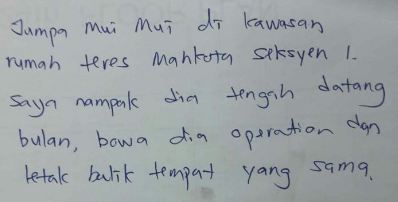 Jumpa Mui Mui di kawasan
rumah teres Mahkota seksyen 1.
Saya nampak dia tengah datang
bulan, bawa dia operation dan
letak balik tempat yang sama.